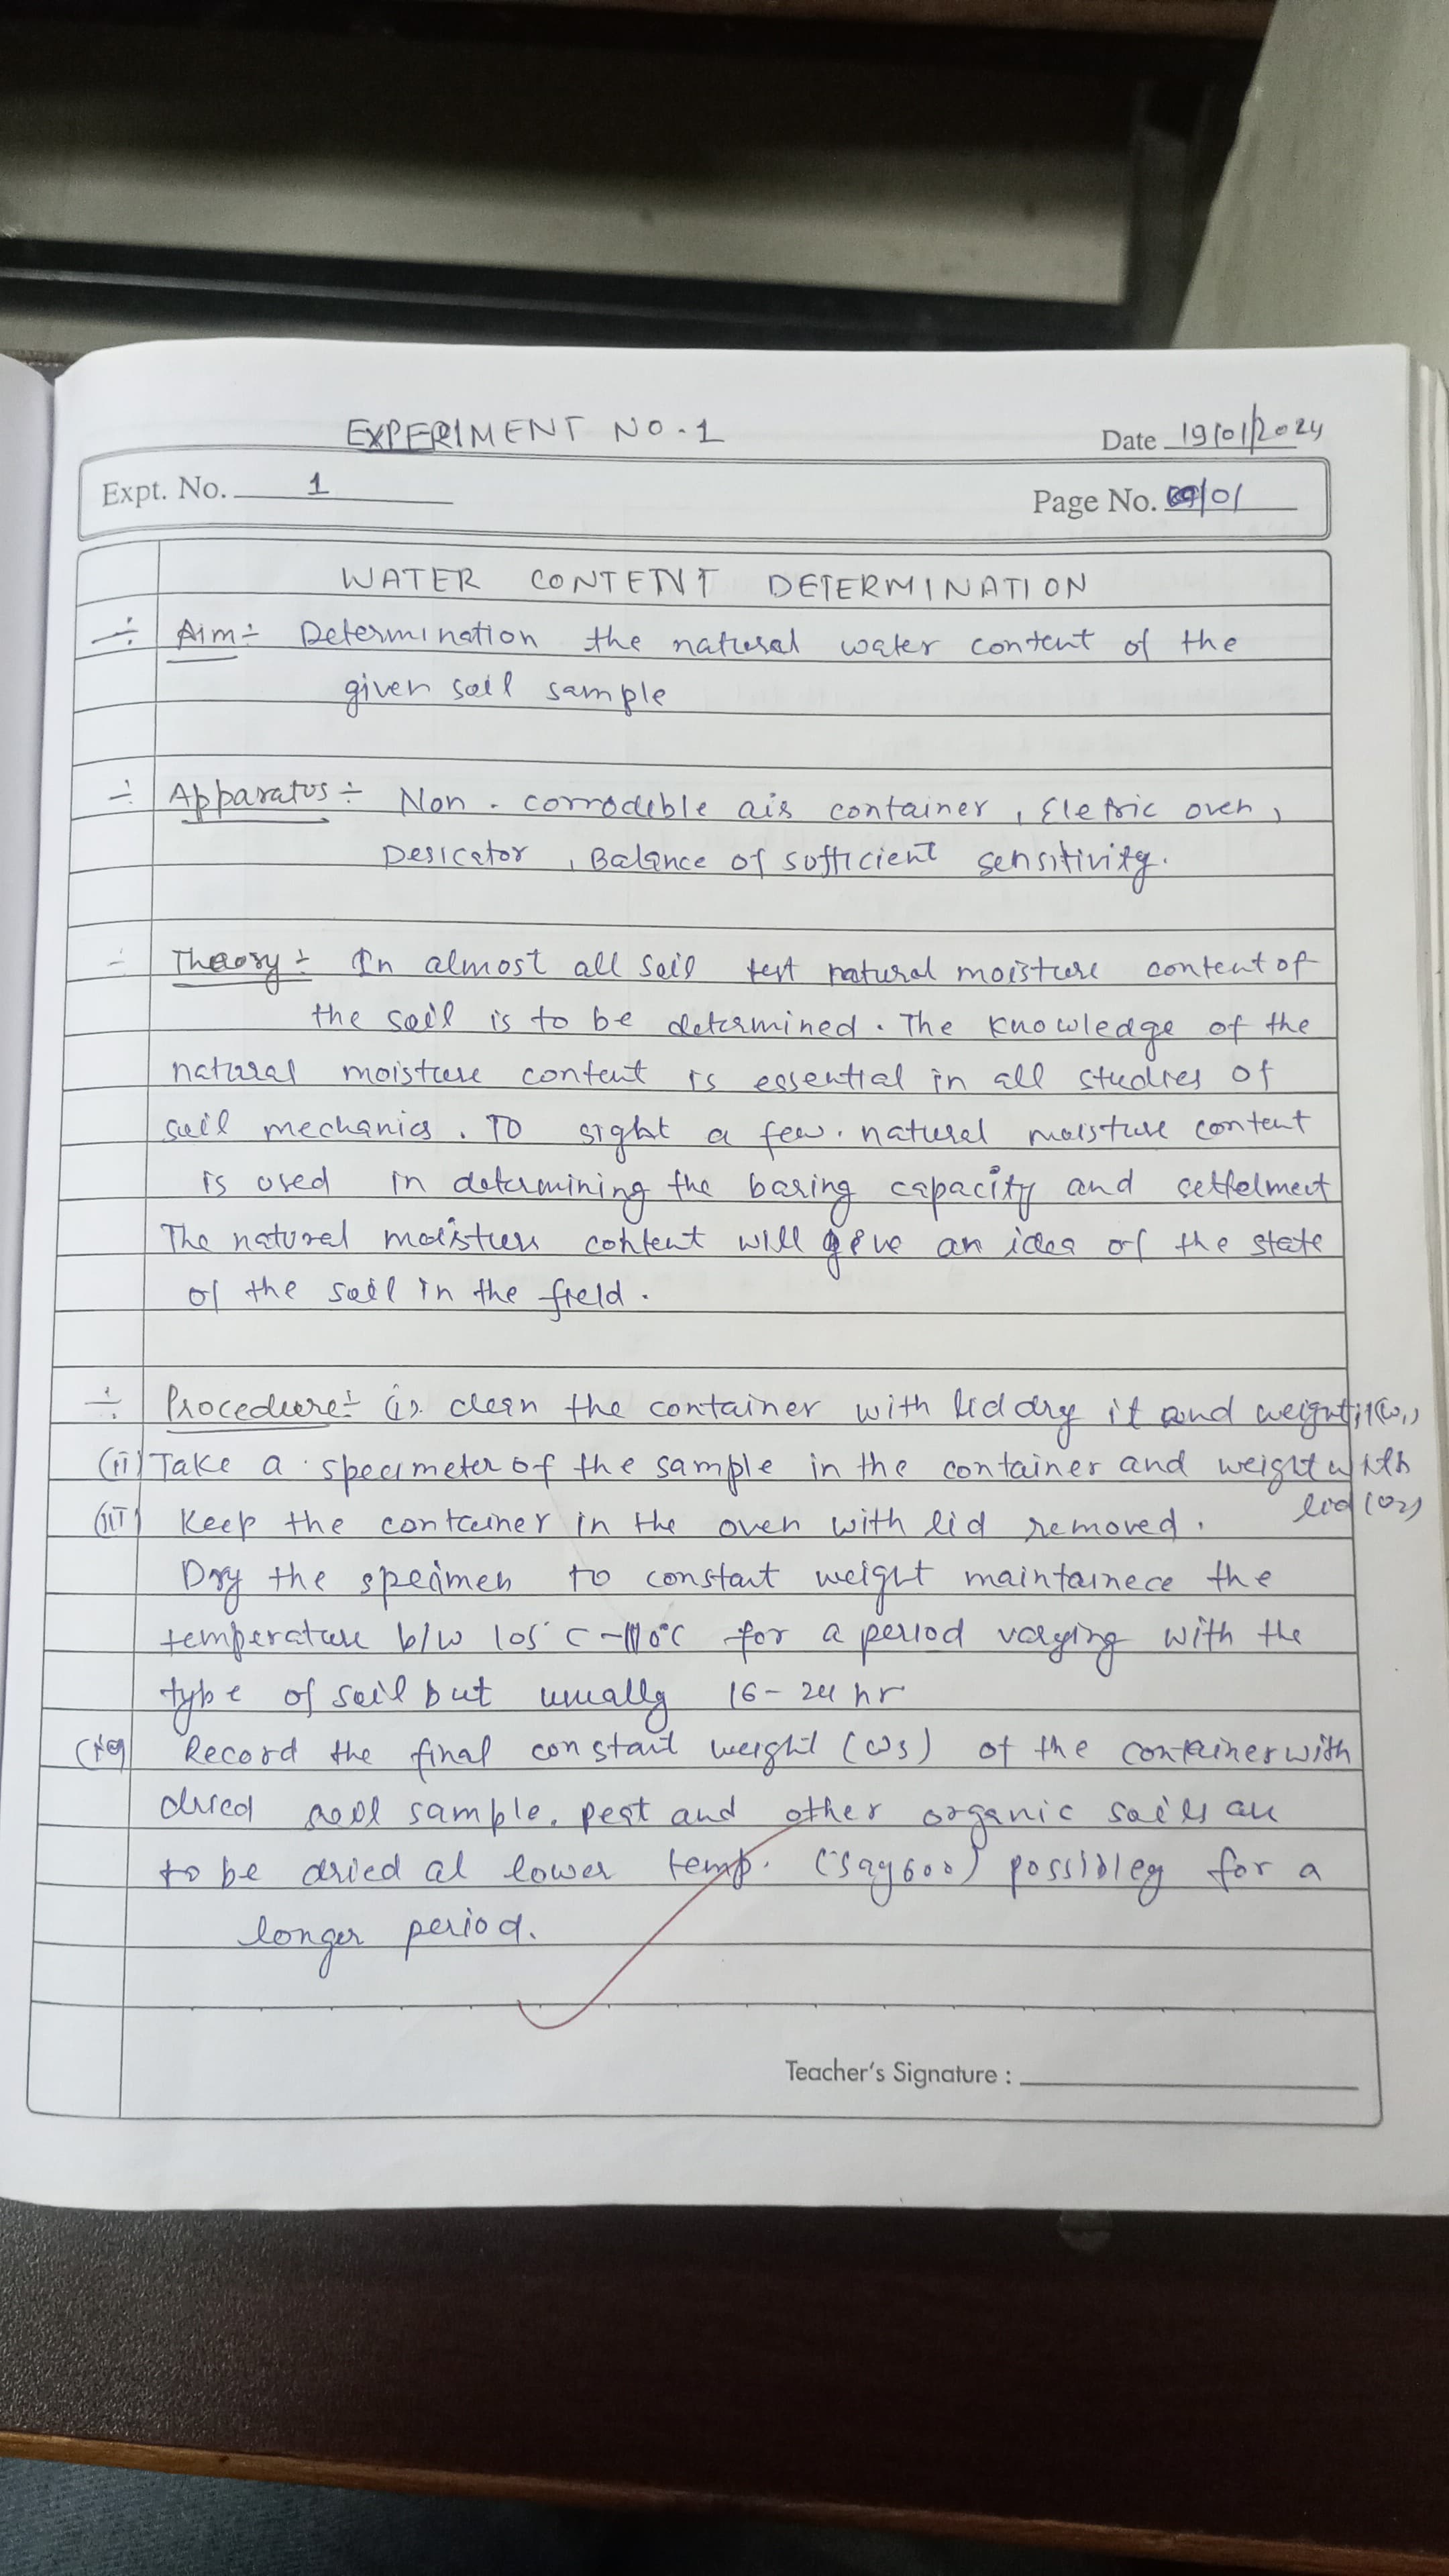 EXPERIMENT NO.1
Date 19/01/2024
Expt. No. 1
Page No. 09/01
WATER CONTETNT DETERMINATION
÷ Aim÷ Determination the natural water content of the
given soil sample
÷ Apparatus÷ Non-corrodible air container, Eletric oven,
Desicator, Balance of sufficient sensitivity.
÷ Theory÷ In almost all soil test natural moisture content of
the soil is to be determined. The knowledge of the
natural moisture content is essential in all studies of
soil mechanics. To sight a few. natural moisture content
is used in determining the baring capacity and settelment
The natural moisture content will give an idea of the state
of the soil in the field.
÷ Procedure÷ (i) clean the container with lid dry it and weight it (W1)
(ii) Take a specimeter of the sample in the container and weight with
lid (W2)
(iii) Keep the container in the oven with lid removed.
Dry the specimen to constant weight maintainece the
temperature b/w 105°C-110°C for a period varying with the
type of soil but usually 16-24 hr
(iv) Record the final constant weight (W3) of the container with
dried soil sample. peat and other organic soils are
to be dried at lower temp. (say 600) possibley for a
longer period.
Teacher's Signature :